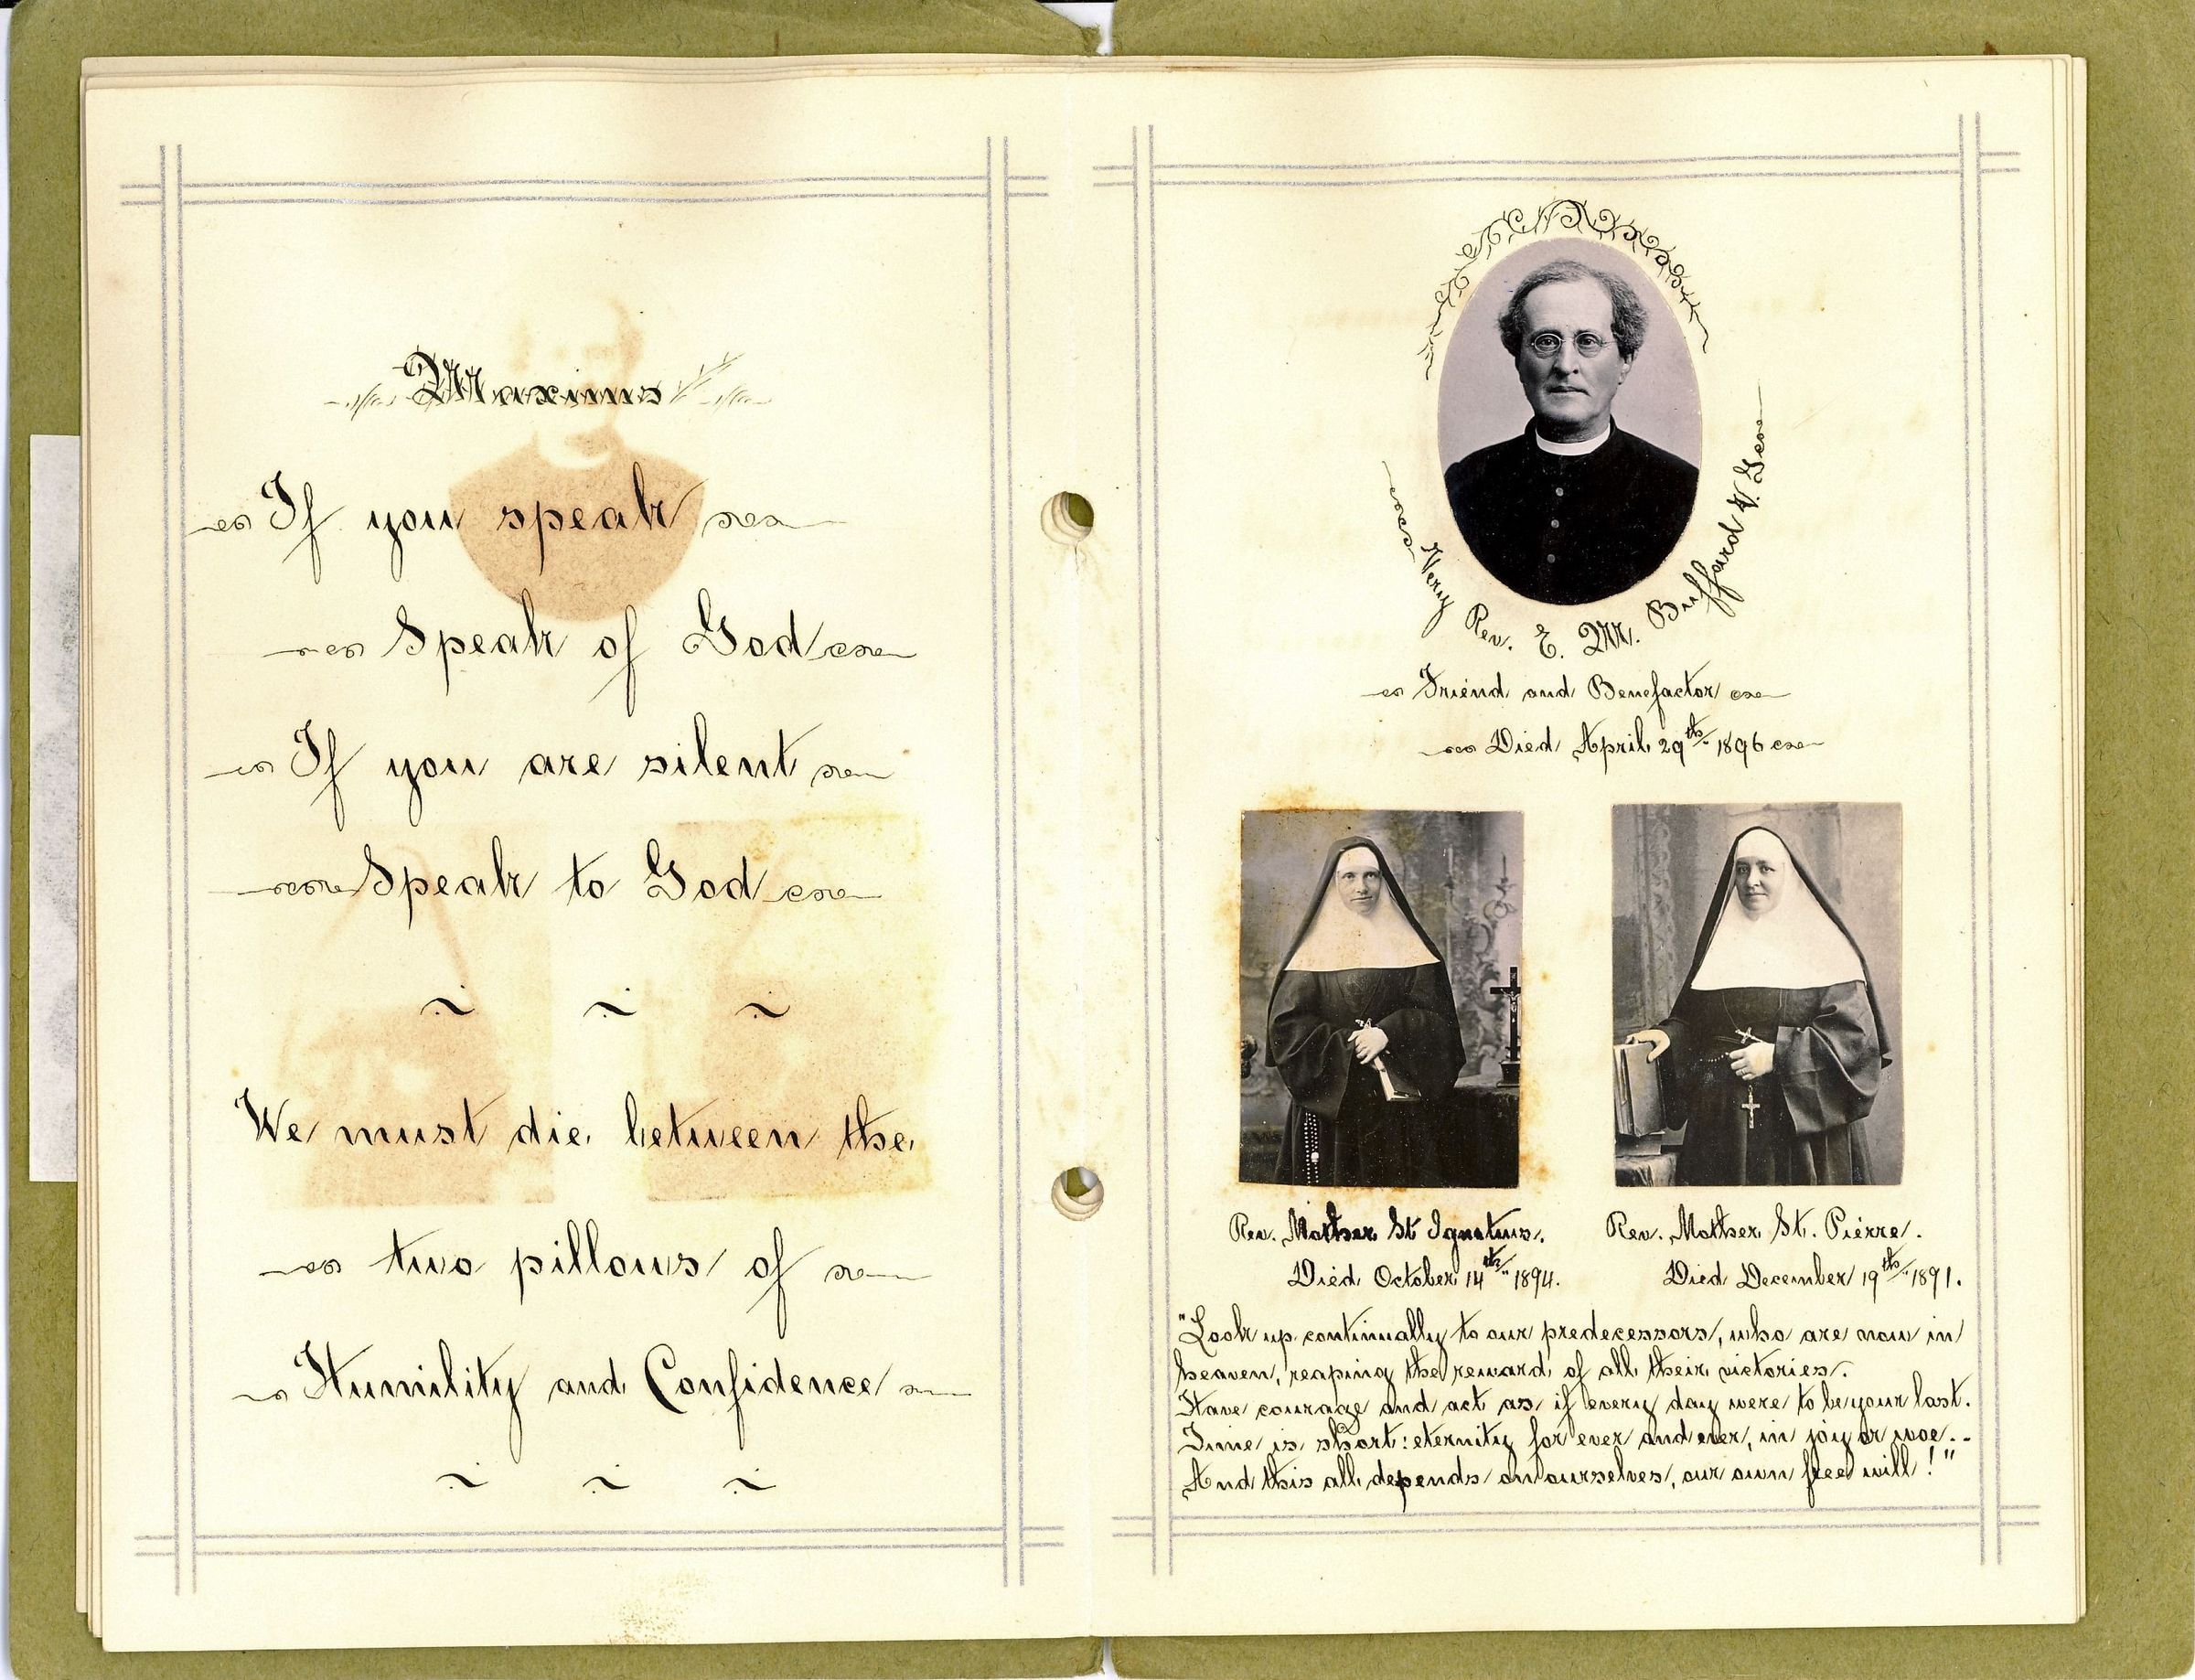 Maxims
If you speak
Speak of God
If you are silent
Speak to God
We must die between the
two pillows of
Humility and Confidence
Very Rev. E. M. Buffard V. Gen
Friend and Benefactor
Died April 29th 1896
Rev. Mother St Ignatius.
Died October 14th 1894.
Rev. Mother St. Pierre.
Died December 19th 1891.
"Look up continually to our predecessors, who are now in
heaven, reaping the reward of all their victories.
Have courage and act as if every day were to be your last.
Time is short: eternity for ever and ever, in joy or woe..
And this all depends on ourselves, our own free will!"